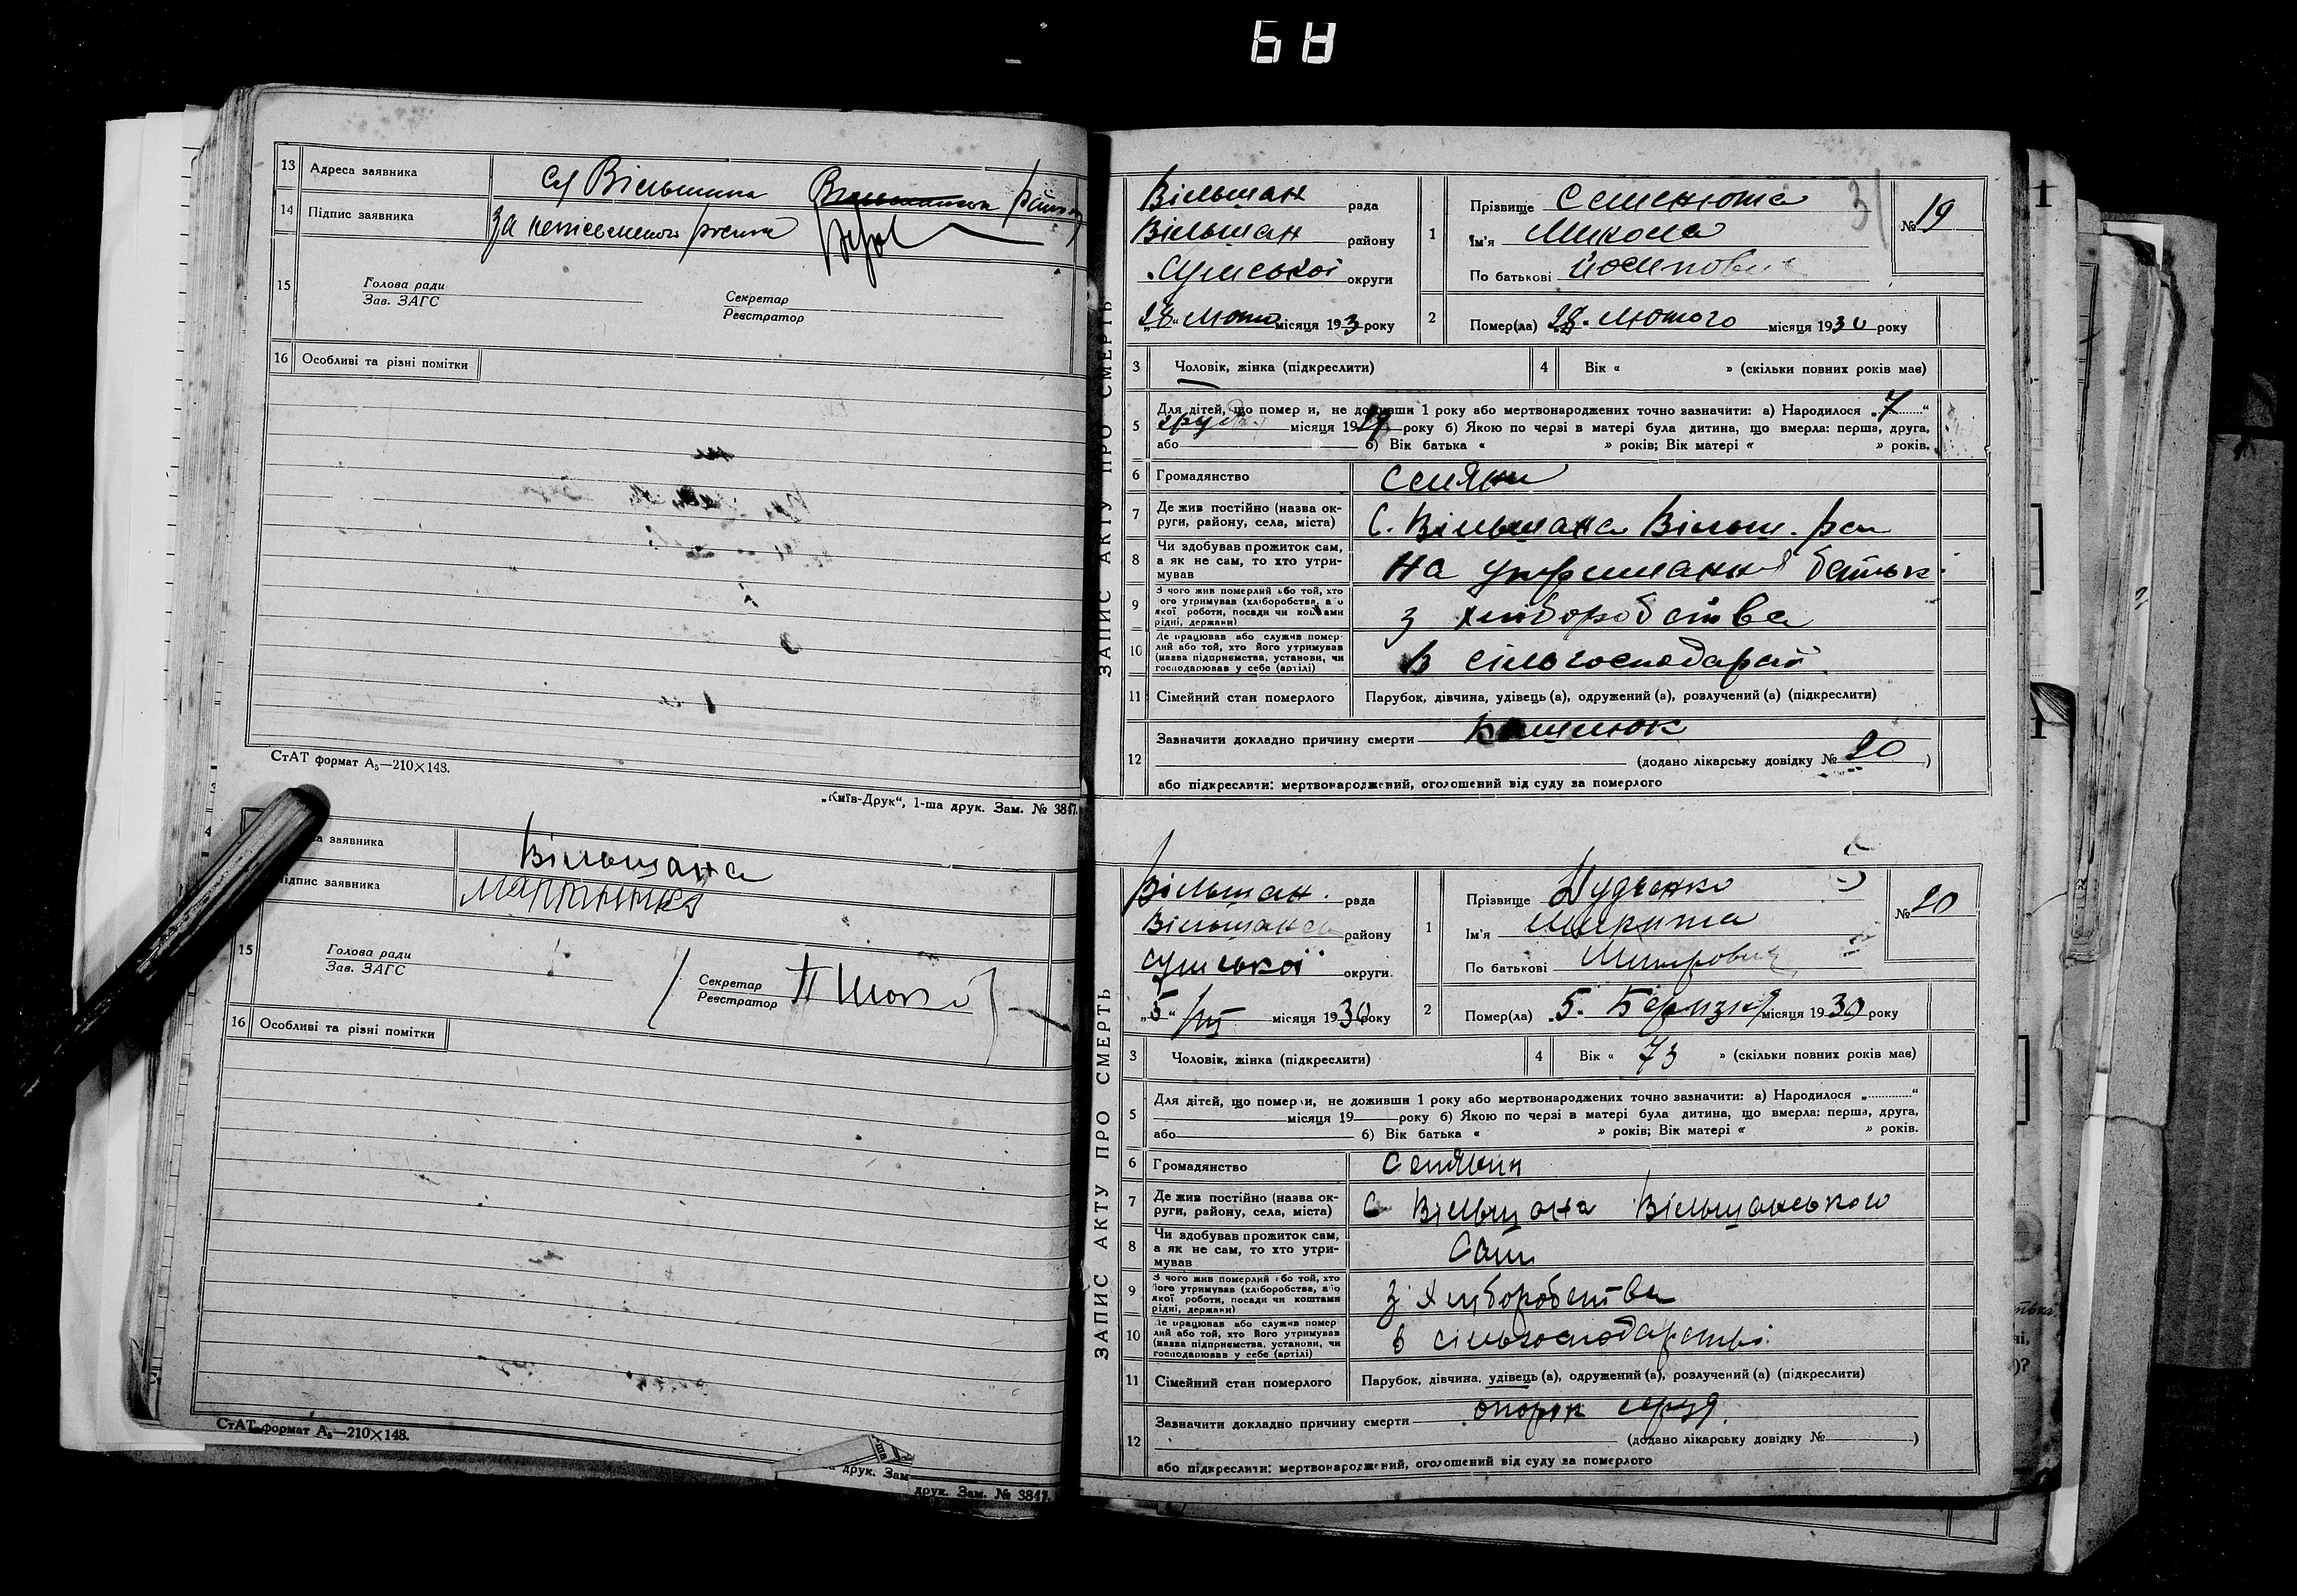 68
13 Адреса заявника Сл Вільшана район
14 Підпис заявника За неписьменого росп
15 Голова ради
Зав. ЗАГС
Секретар
Реєстратор
16 Особливі та різні помітки
СтАТ формат А₅—210×148.
„Київ-Друк“, 1-ша друк. Зам. № 3847.
заявника Вільшана
Підпис заявника
15 Голова ради
Зав. ЗАГС
Секретар
Реєстратор
16 Особливі та різні помітки
СтАТ формат А₅—210×148.
друк. Зам
друк. Зам. № 3847.
ЗАПИС АКТУ ПРО СМЕРТЬ
31
Вільшан рада
Вільшан району
Сумської округи
„28“ Лютого місяця 193 року
1 Прізвище Семенюта
Ім'я Микола
По батькові Йосипович
№ 19
2 Помер(ла) „28“ Лютого місяця 1930 року
3 Чоловік, жінка (підкреслити)
4 Вік « » (скільки повних років мав)
5 Для дітей, що померли, не доживши 1 року або мертвонароджених точно зазначити: а) Народилося „7“
груд місяця 1929 року б) Якою по черзі в матері була дитина, що вмерла: перша, друга,
або б) Вік батька « » років; Вік матері « » років.
6 Громадянство Селянин
7 Де жив постійно (назва округи, району, села, міста) С. Вільшана Вільш. рай
8 Чи здобував прожиток сам, а як не сам, то хто утримував На утриманні батьк.
9 З чого жив померлий або той, хто його утримував (хліборобства, або якої роботи, посади чи коштами рідні, держави) з хліборобства
10 Де працював або служив померлий або той, хто його утримував (назва підприємства, установи, чи господарював у себе (артілі) В сільгосподарст
11 Сімейний стан померлого Парубок, дівчина, удівець (а), одружений (а), розлучений (а) (підкреслити)
12 Зазначити докладно причину смерти Кашлюк
(додано лікарську довідку № 20 )
або підкреслити: мертвонароджений, оголошений від суду за померлого
ЗАПИС АКТУ ПРО СМЕРТЬ
Вільшан. рада
Вільшанськ району
Сумської округи
„5“ III місяця 1930 року
1 Прізвище Дудченко
Ім'я Микита
По батькові
№ 20
2 Помер(ла) „5“ Березня місяця 1930 року
3 Чоловік, жінка (підкреслити)
4 Вік « 73 » (скільки повних років мав)
5 Для дітей, що померли, не доживши 1 року або мертвонароджених точно зазначити: а) Народилося „ “
місяця 19 року б) Якою по черзі в матері була дитина, що вмерла: перша, друга,
або б) Вік батька « » років; Вік матері « » років.
6 Громадянство Селянин
7 Де жив постійно (назва округи, району, села, міста) С Вільшана Вільшанського
8 Чи здобував прожиток сам, а як не сам, то хто утримував Сам
9 З чого жив померлий або той, хто його утримував (хліборобства, або якої роботи, посади чи коштами рідні, держави) з хліборобства
10 Де працював або служив померлий або той, хто його утримував (назва підприємства, установи, чи господарював у себе (артілі) в сільгосподарстві
11 Сімейний стан померлого Парубок, дівчина, удівець (а), одружений (а), розлучений (а) (підкреслити)
12 Зазначити докладно причину смерти серця.
(додано лікарську довідку № )
або підкреслити: мертвонароджений, оголошений від суду за померлого